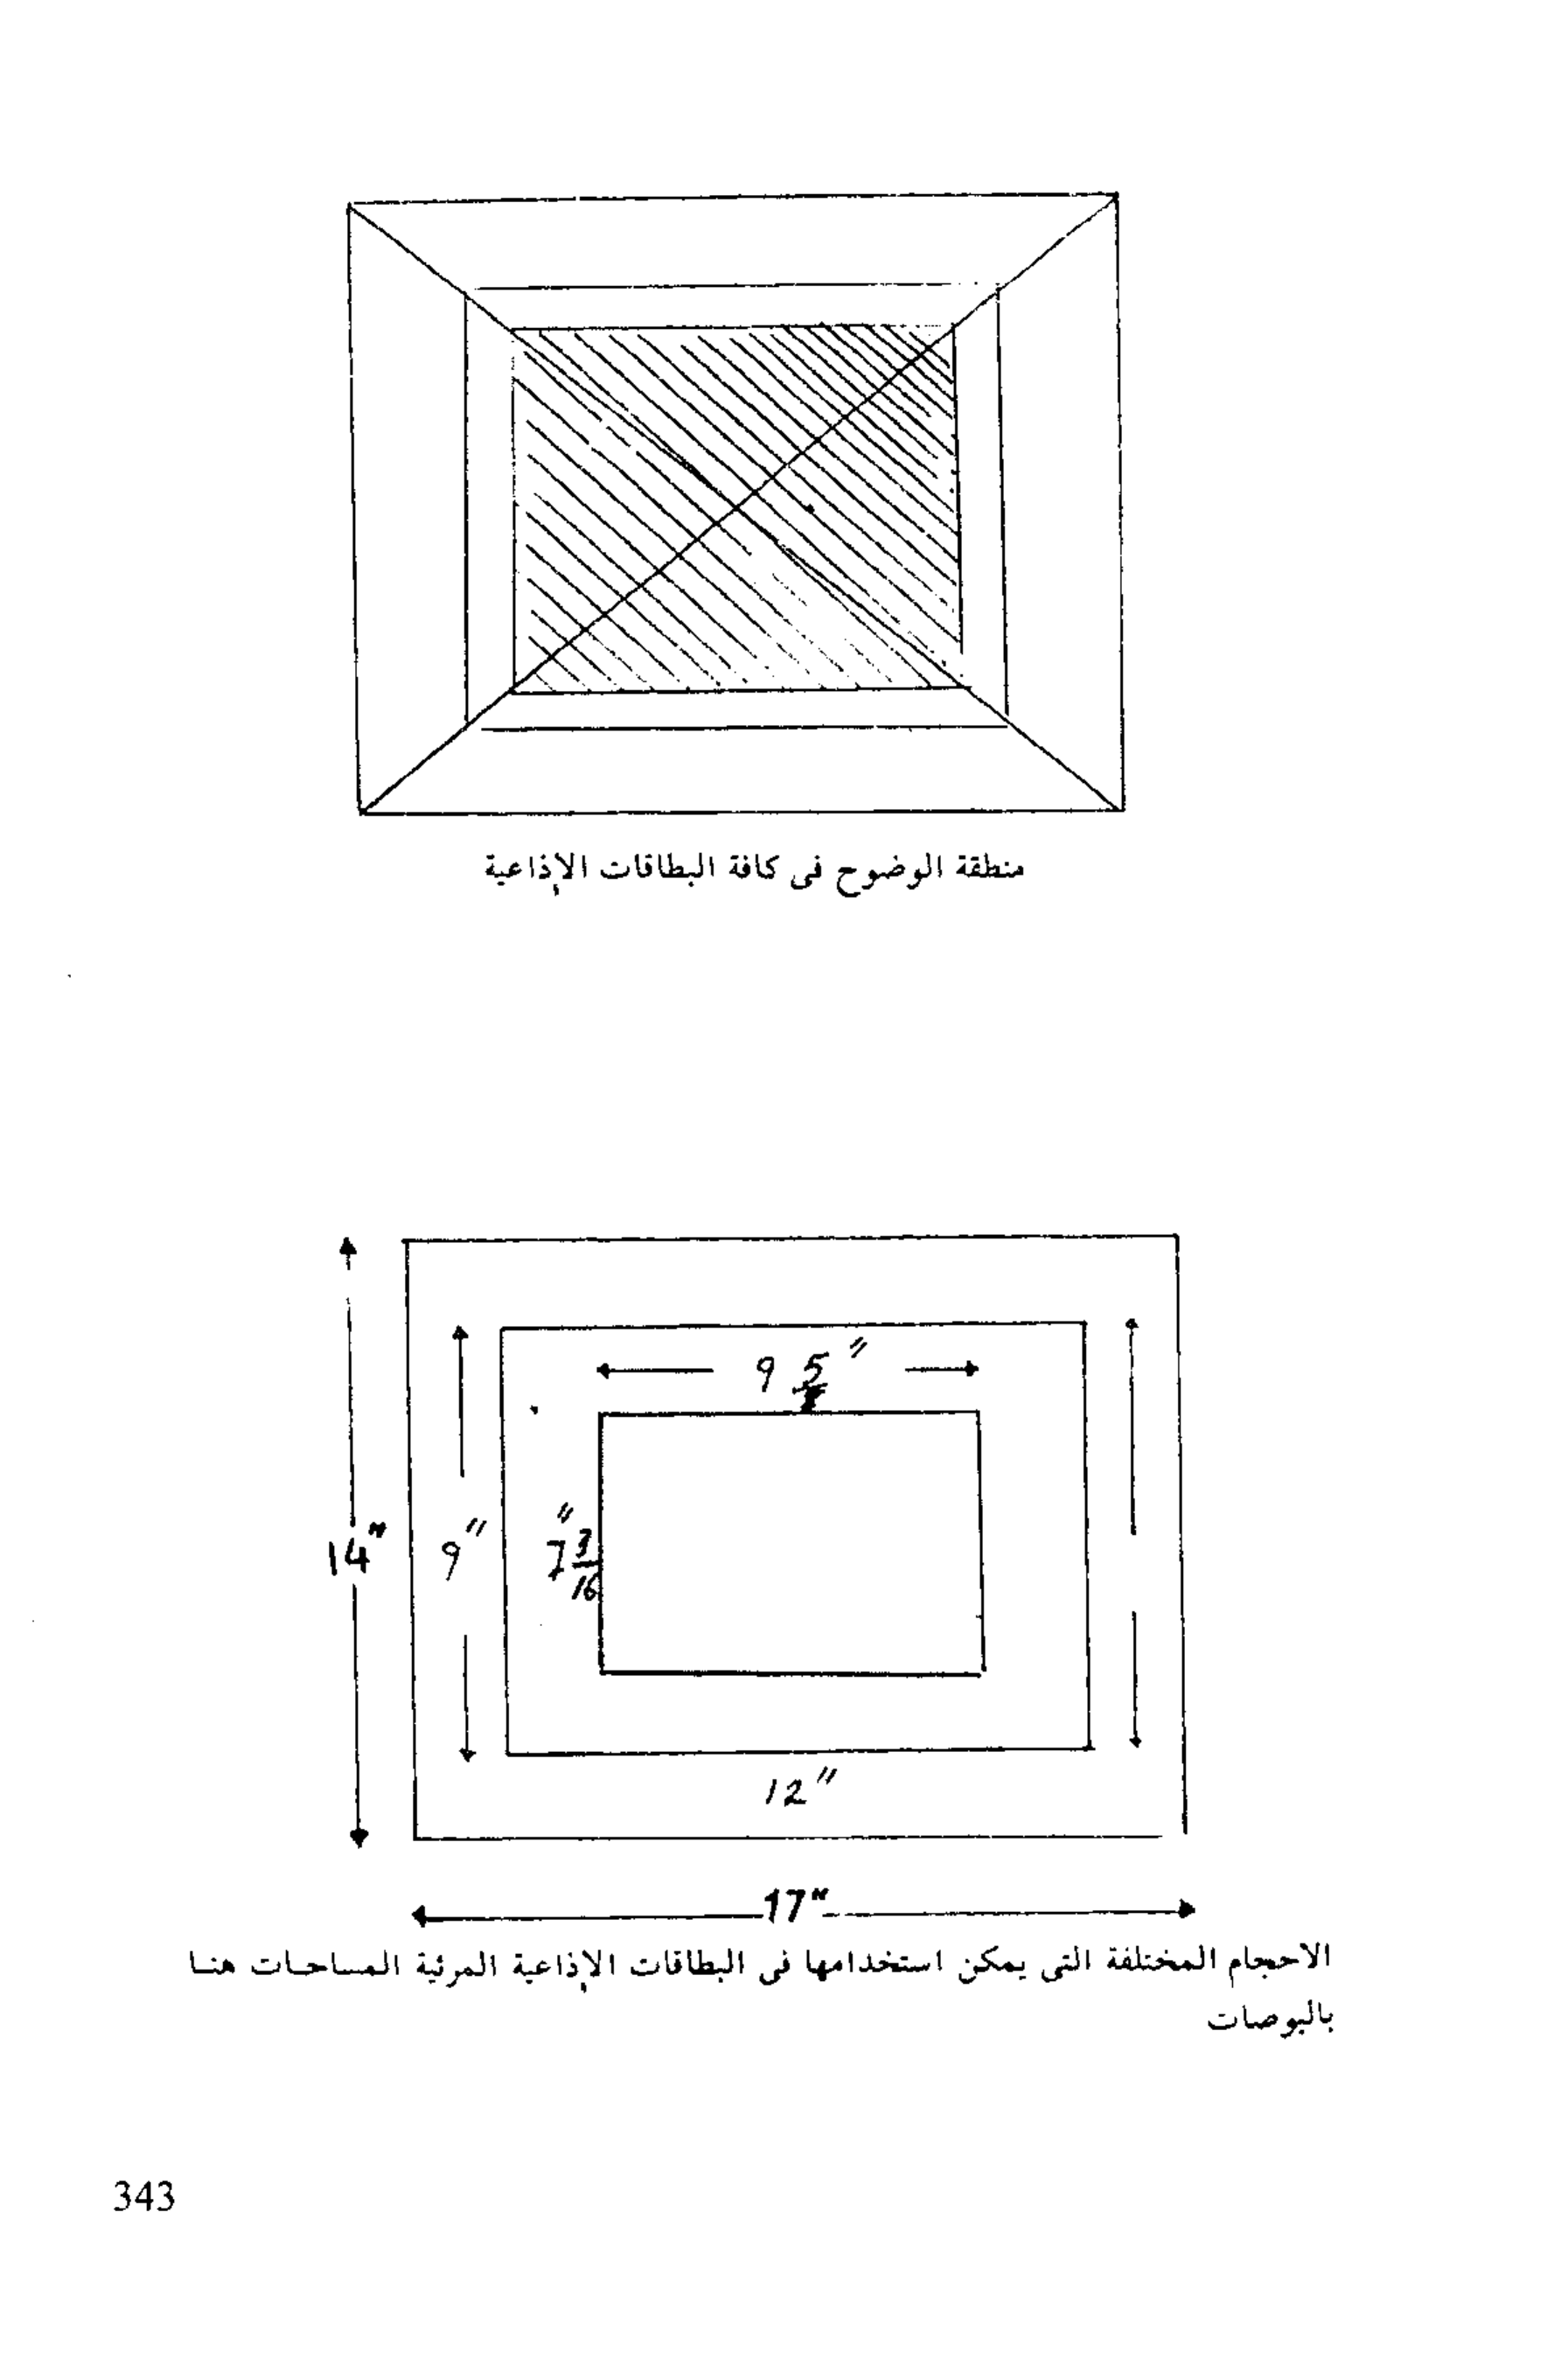 منطقة الوضوح فى كافة البطاقات الإذاعية
9 5 "
14"
9"
7 3/16 "
12"
17"
الاحجام المختلفة التى يمكن استخدامها فى البطاقات الإذاعية المرئية المساحات هنا
بالبوصات
343